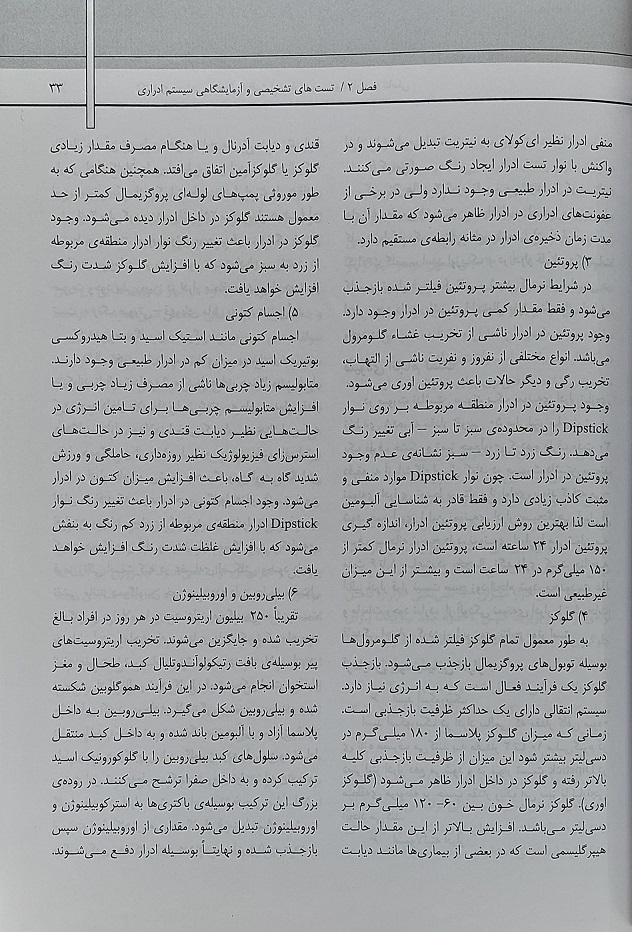 فصل ۲ / تست های تشخیصی و آزمایشگاهی سیستم ادراری
۳۳
منفی ادرار نظیر ای‌کولای به نیتریت تبدیل می‌شوند و در
واکنش با نوار تست ادرار ایجاد رنگ صورتی می‌کنند.
نیتریت در ادرار طبیعی وجود ندارد ولی در برخی از
عفونت‌های ادراری در ادرار ظاهر می‌شود که مقدار آن با
مدت زمان ذخیره‌ی ادرار در مثانه رابطه‌ی مستقیم دارد.
۳) پروتئین
در شرایط نرمال بیشتر پروتئین فیلتر شده بازجذب
می‌شود و فقط مقدار کمی پروتئین در ادرار وجود دارد.
وجود پروتئین در ادرار ناشی از تخریب غشاء گلومرول
می‌باشد. انواع مختلفی از نفروز و نفریت ناشی از التهاب،
تخریب رگی و دیگر حالات باعث پروتئین اوری می‌شود.
وجود پروتئین در ادرار منطقه مربوطه بر روی نوار
Dipstick را در محدوده‌ی سبز تا سبز – آبی تغییر رنگ
می‌دهد. رنگ زرد تا زرد – سبز نشانه‌ی عدم وجود
پروتئین در ادرار است. چون نوار Dipstick موارد منفی و
مثبت کاذب زیادی دارد و فقط قادر به شناسایی آلبومین
است لذا بهترین روش ارزیابی پروتئین ادرار، اندازه گیری
پروتئین ادرار ۲۴ ساعته است، پروتئین ادرار نرمال کمتر از
۱۵۰ میلی‌گرم در ۲۴ ساعت است و بیشتر از این میزان
غیرطبیعی است.
۴) گلوکز
به طور معمول تمام گلوکز فیلتر شده از گلومرول‌ها
بوسیله توبول‌های پروگزیمال بازجذب می‌شود. بازجذب
گلوکز یک فرآیند فعال است که به انرژی نیاز دارد.
سیستم انتقالی دارای یک حداکثر ظرفیت بازجذبی است.
زمانی که میزان گلوکز پلاسما از ۱۸۰ میلی‌گرم در
دسی‌لیتر بیشتر شود این میزان از ظرفیت بازجذبی کلیه
بالاتر رفته و گلوکز در داخل ادرار ظاهر می‌شود (گلوکز
اوری). گلوکز نرمال خون بین ۶۰- ۱۲۰ میلی‌گرم بر
دسی‌لیتر می‌باشد. افزایش بالاتر از این مقدار حالت
هیپرگلیسمی است که در بعضی از بیماری‌ها مانند دیابت
قندی و دیابت آدرنال و یا هنگام مصرف مقدار زیادی
گلوکز یا گلوکزآمین اتفاق می‌افتد. همچنین هنگامی که به
طور موروثی پمپ‌های لوله‌ای پروگزیمال کمتر از حد
معمول هستند گلوکز در داخل ادرار دیده می‌شود. وجود
گلوکز در ادرار باعث تغییر رنگ نوار ادرار منطقه‌ی مربوطه
از زرد به سبز می‌شود که با افزایش گلوکز شدت رنگ
افزایش خواهد یافت.
۵) اجسام کتونی
اجسام کتونی مانند استیک اسید و بتا هیدروکسی
بوتیریک اسید در میزان کم در ادرار طبیعی وجود دارند.
متابولیسم زیاد چربی‌ها ناشی از مصرف زیاد چربی و یا
افزایش متابولیسم چربی‌ها برای تامین انرژی در
حالت‌هایی نظیر دیابت قندی و نیز در حالت‌های
استرس‌زای فیزیولوژیک نظیر روزه‌داری، حاملگی و ورزش
شدید گاه به گاه، باعث افزایش میزان کتون در ادرار
می‌شود. وجود اجسام کتونی در ادرار باعث تغییر رنگ نوار
Dipstick ادرار منطقه‌ی مربوطه از زرد کم رنگ به بنفش
می‌شود که با افزایش غلظت شدت رنگ افزایش خواهد
یافت.
۶) بیلی‌روبین و اوروبیلینوژن
تقریباً ۲۵۰ بیلیون اریتروسیت در هر روز در افراد بالغ
تخریب شده و جایگزین می‌شوند. تخریب اریتروسیت‌های
پیر بوسیله‌ی بافت رتیکولواندوتلیال کبد، طحال و مغز
استخوان انجام می‌شود. در این فرآیند هموگلوبین شکسته
شده و بیلی‌روبین شکل می‌گیرد. بیلی‌روبین به داخل
پلاسما آزاد و با آلبومین باند شده و به داخل کبد منتقل
می‌شود. سلول‌های کبد بیلی‌روبین را با گلوکورونیک اسید
ترکیب کرده و به داخل صفرا ترشح می‌کنند. در روده‌ی
بزرگ این ترکیب بوسیله‌ی باکتری‌ها به استرکوبیلینوژن و
اوروبیلینوژن تبدیل می‌شود. مقداری از اوروبیلینوژن سپس
بازجذب شده و نهایتاً بوسیله ادرار دفع می‌شوند.